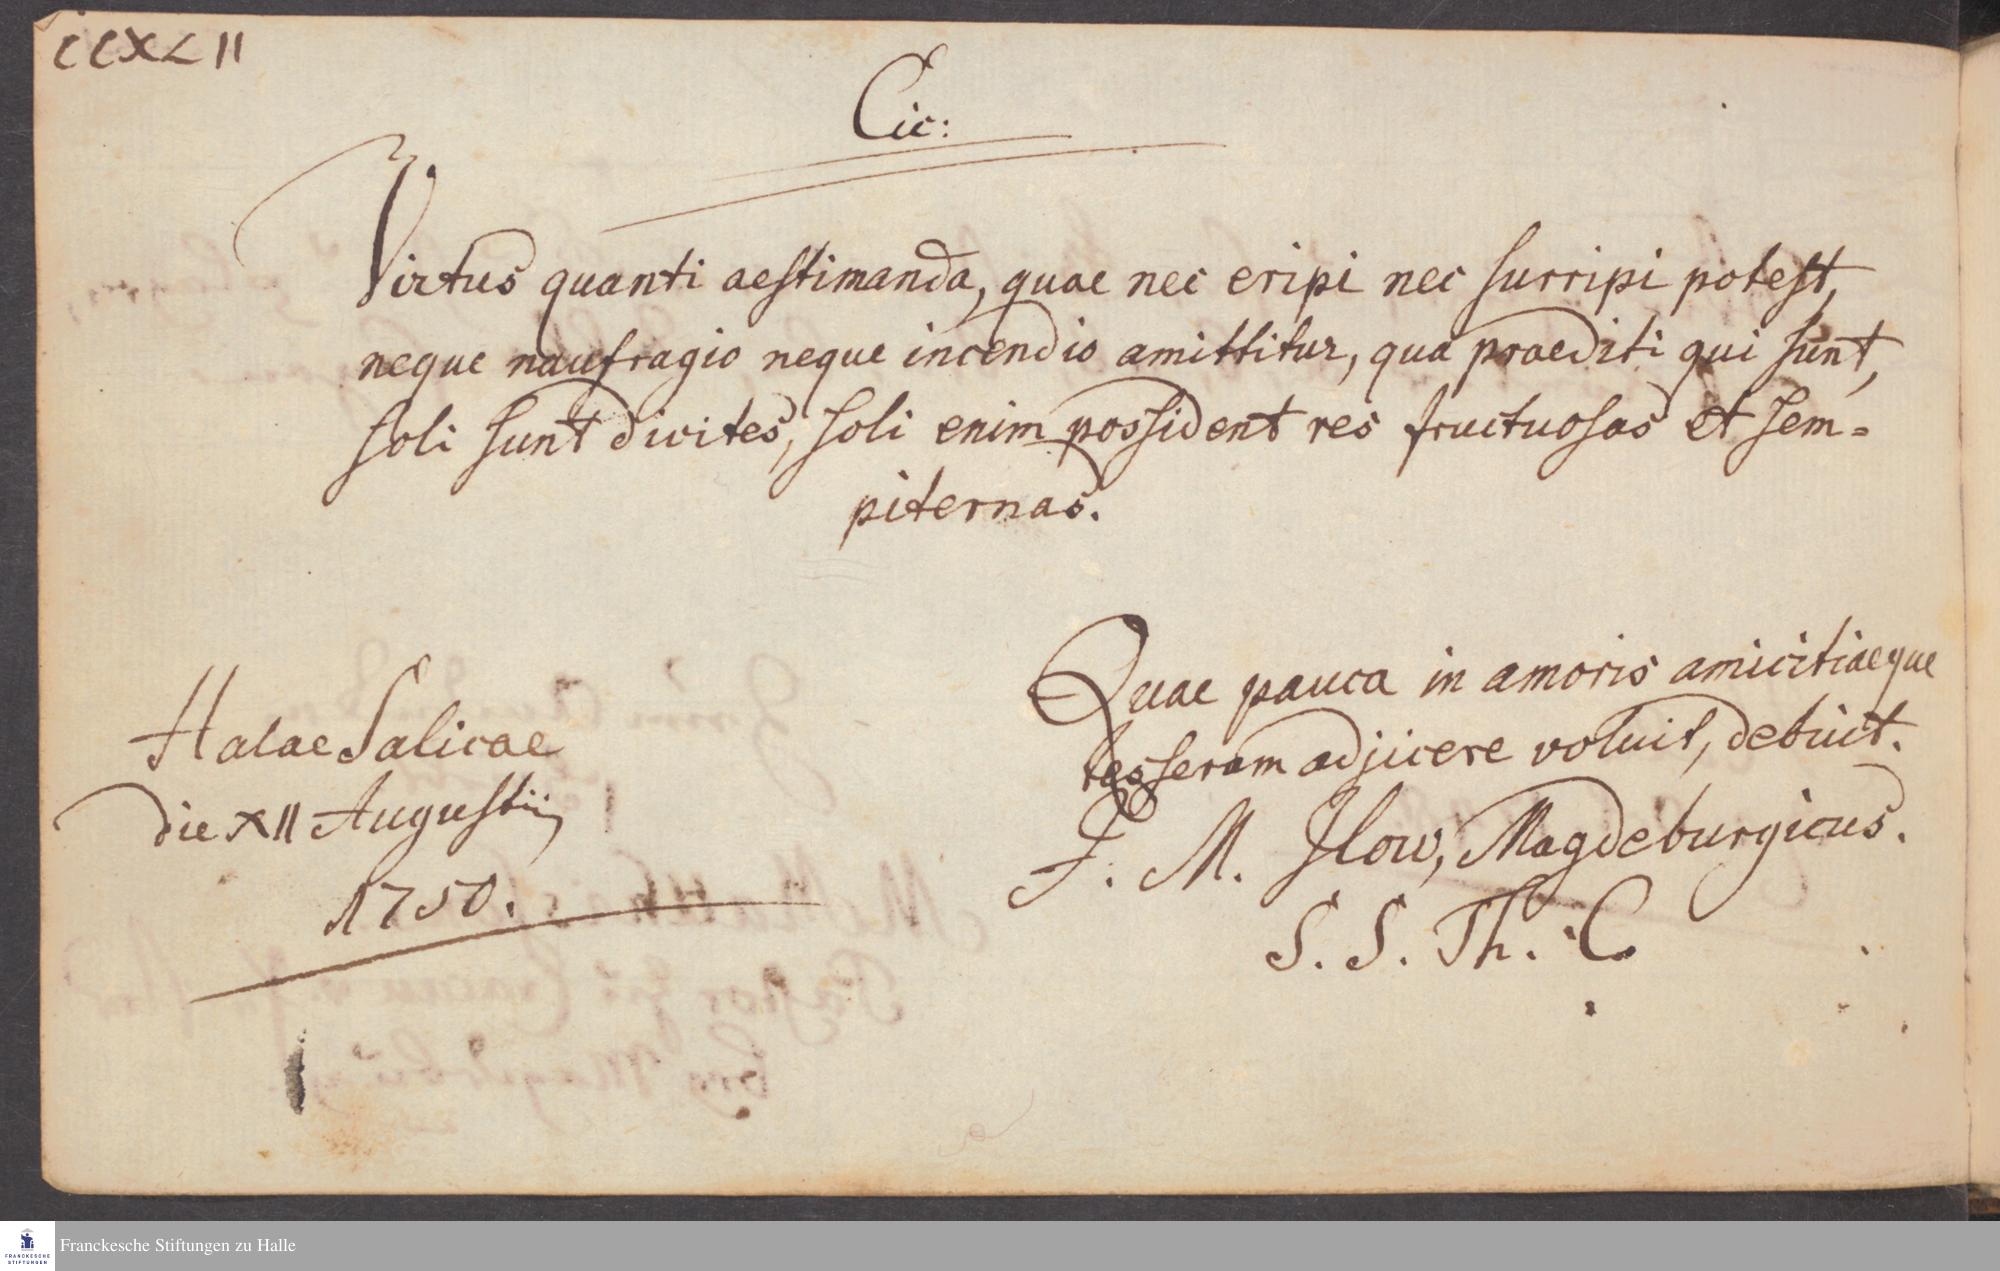 CCXLII
Cic:
Virtus quanti aestimanda, quae nec eripi nec surripi potest,
neque naufragio neque incendio amittitur, qua praediti qui sunt,
soli sunt divites, soli enim possident res fructuosas et sem=
piternas.
Halae Salicae
die XII Augustii
1750.
Quae pauca in amoris amicitiaeque
tesseram adjicere voluit, debuit.
F. M. Ilow, Magdeburgicus.
S. S. Th. C
FRANCKESCHE
STIFTUNGEN
Franckesche Stiftungen zu Halle